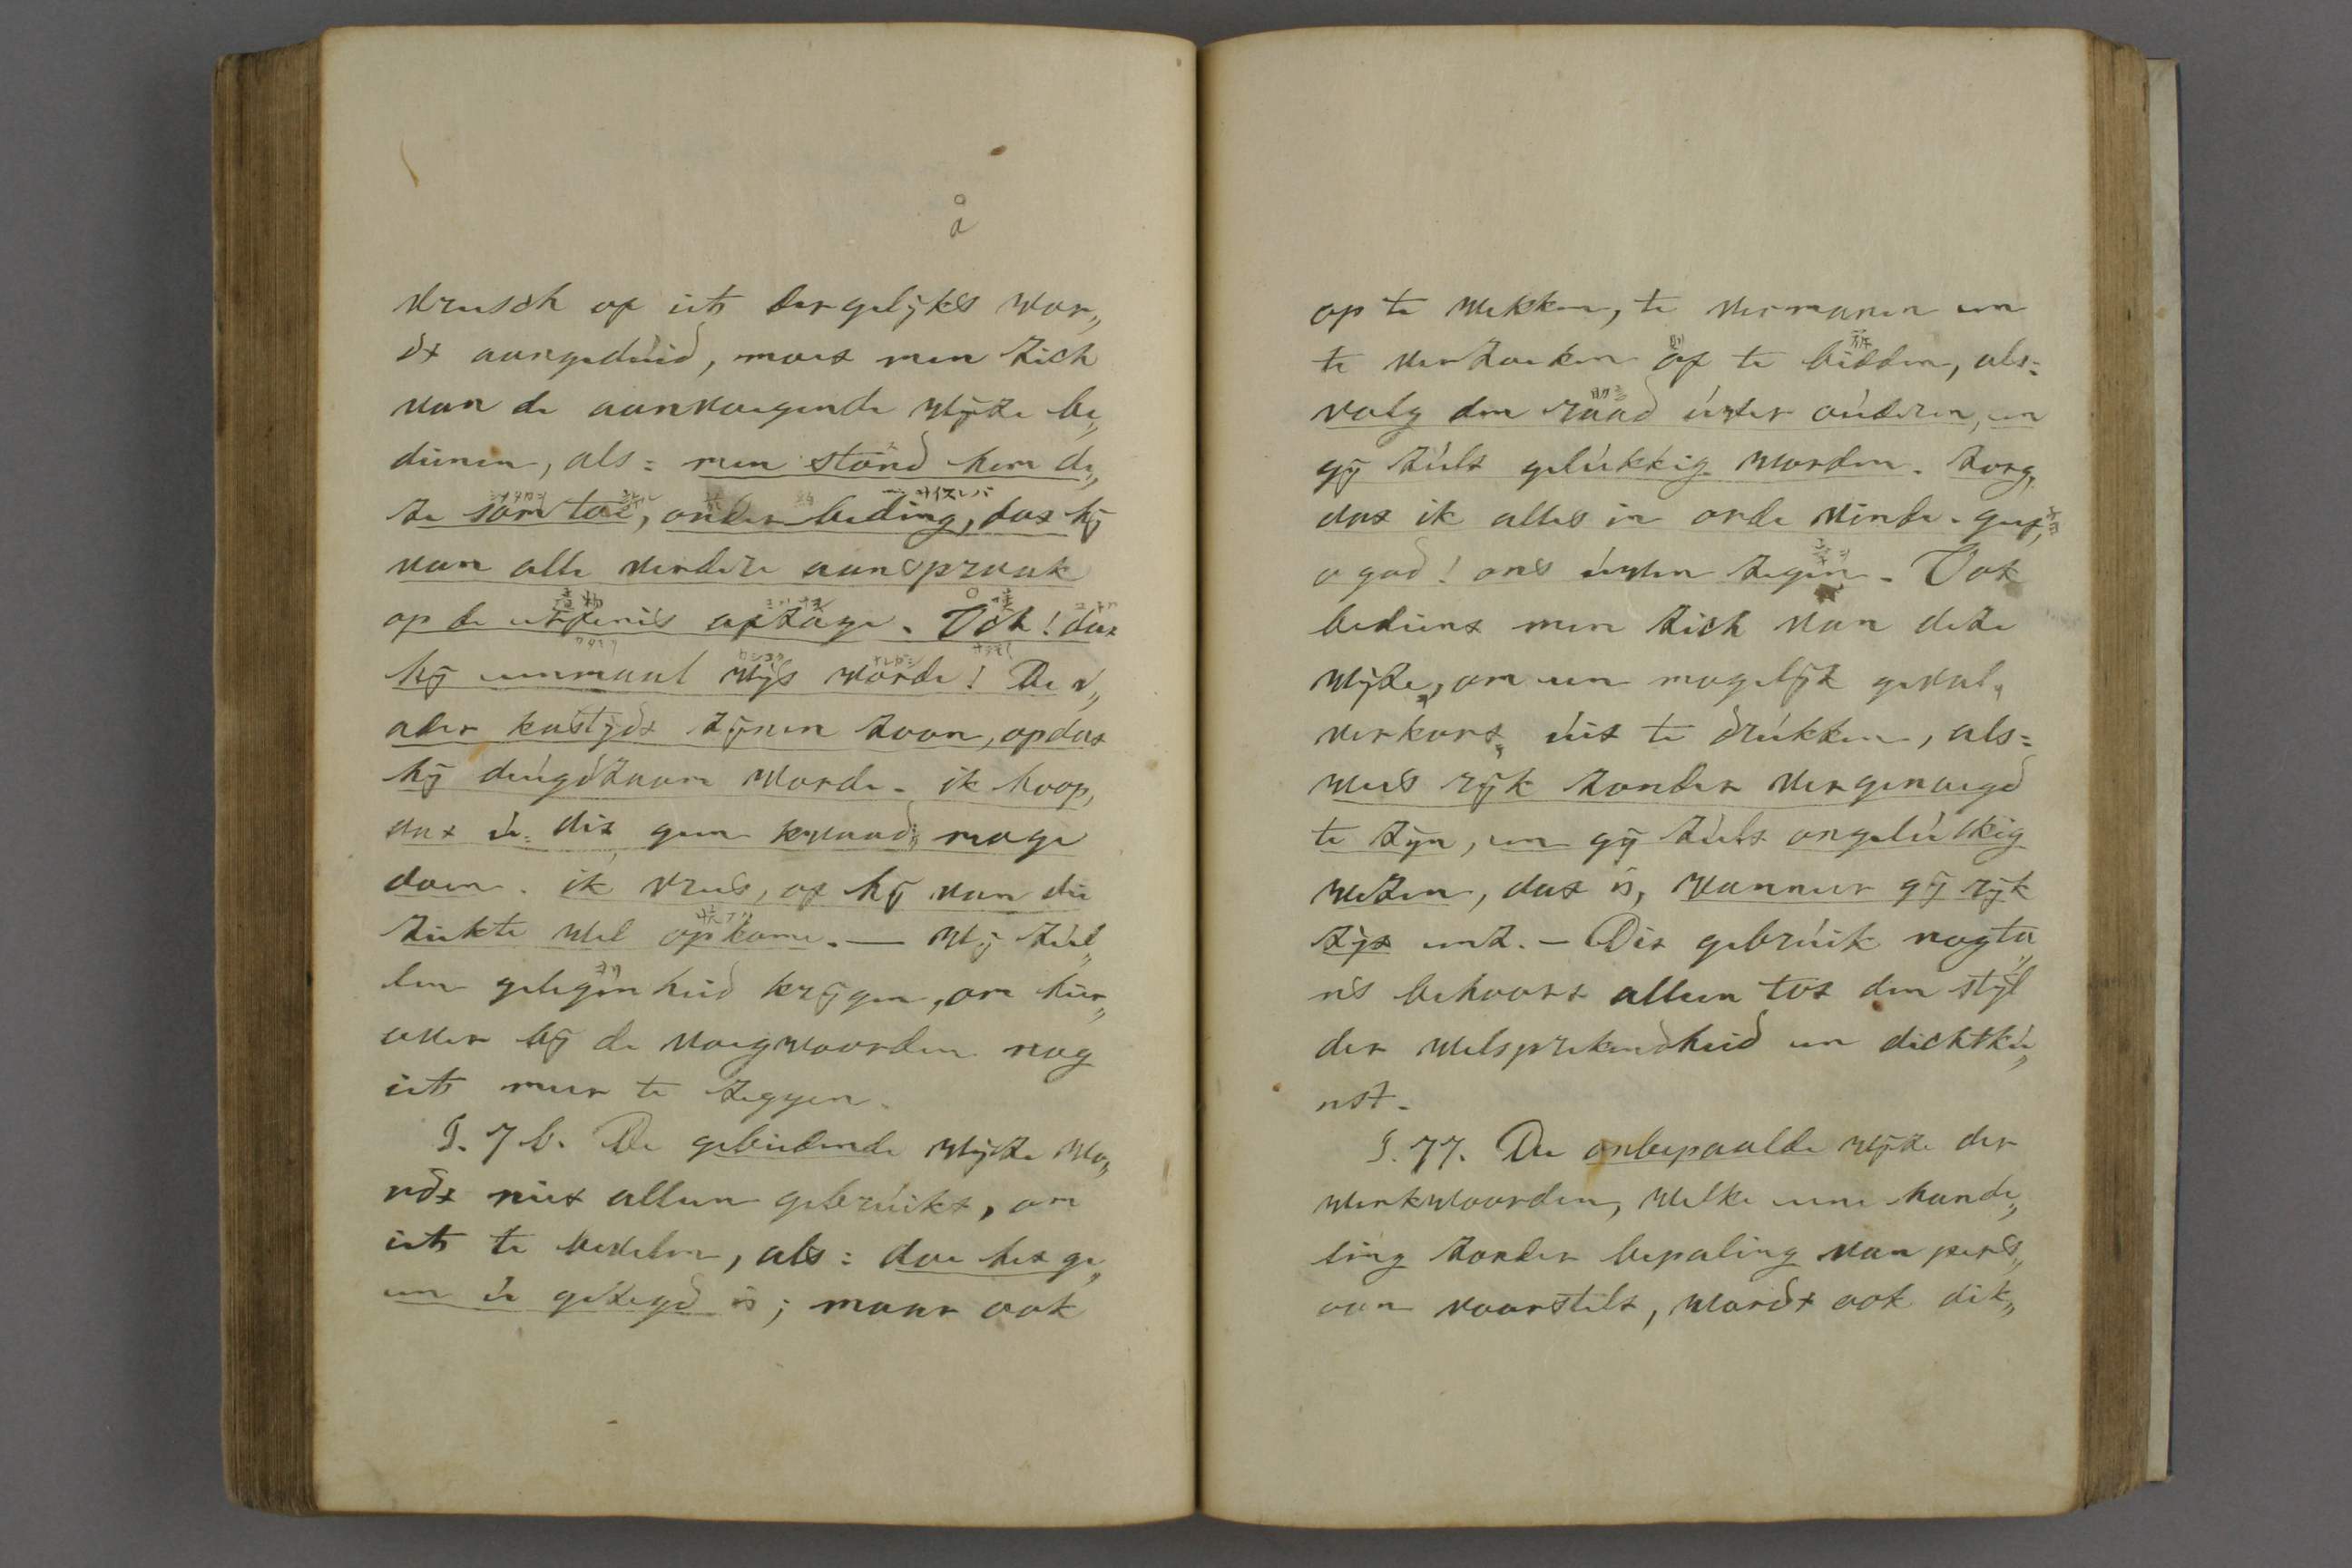 vreesch of iets dergelijks wor„
dt aangeduid, moet men zich
van de aanvoegende wijze be„
dienen, als: men stond hem de„
ze som toe, onder beding, dat hij
van alle verdere aanspraak
op de erfenis afzage. Och! dat
hij eenmaal wijs worde! De v„
ader kastijdt zijnen zoon, opdat
hij deugdzaam worde. ik hoop,
dat u dit geen kwaad moge
doen. ik vrees, of hij van die
ziekte wel opkome. — Wij zul„
len gelegenheid krijgen, om hier„
over bij de voegwoorden nog
iets meer te zeggen.
§. 76. De gebiedende wijze wo„
rdt niet alleen gebruikt, om
iets te bevelen, als: doe het ge„
en u gezegd is; maar ook
op te wekken, te vermanen en
te verzoeken of te bidden, als:
volg den raad uwer ouderen, en
gij zult gelukkig worden. zorg,
dat ik alles in orde vinde. geef,
o god! ons uwen zegen. Ook
bedient men zich van deze
wijze, om een mogelijk geval„
verkort„ uit te drukken, als:
wees rijk zonder vergenoegd
te zijn, en gij zult ongelukkig
wezen, dat is, wanneer gij rijk
zijt enz. — Dit gebruik nogta„
ns behoort alleen tot den stijl
der welsprekendheid en dichtku„
nst.
§. 77. De onbepaalde wijze der
werkwoorden, welke eene hande„
ling zonder bepaling van pers„
oon voorstelt, wordt ook dik„